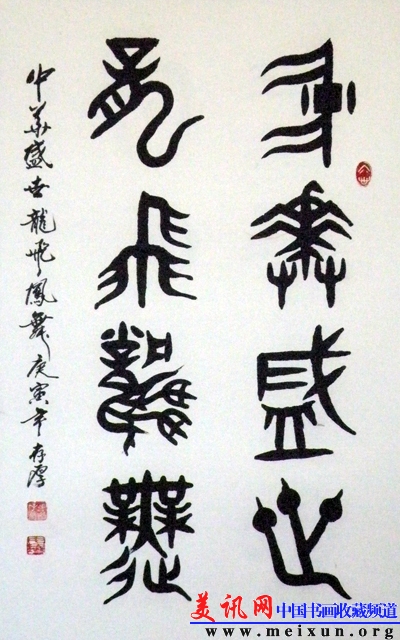 中華盛世
龍飛鳳舞
中華盛世龍飛鳳舞庚寅年存厚
美讯网
中国书画收藏频道
www.meixun.org